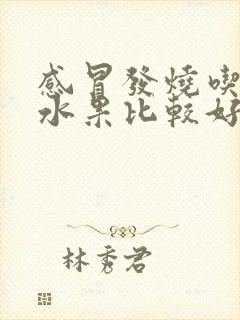 感冒發燒喫
水果比較好
林秀君